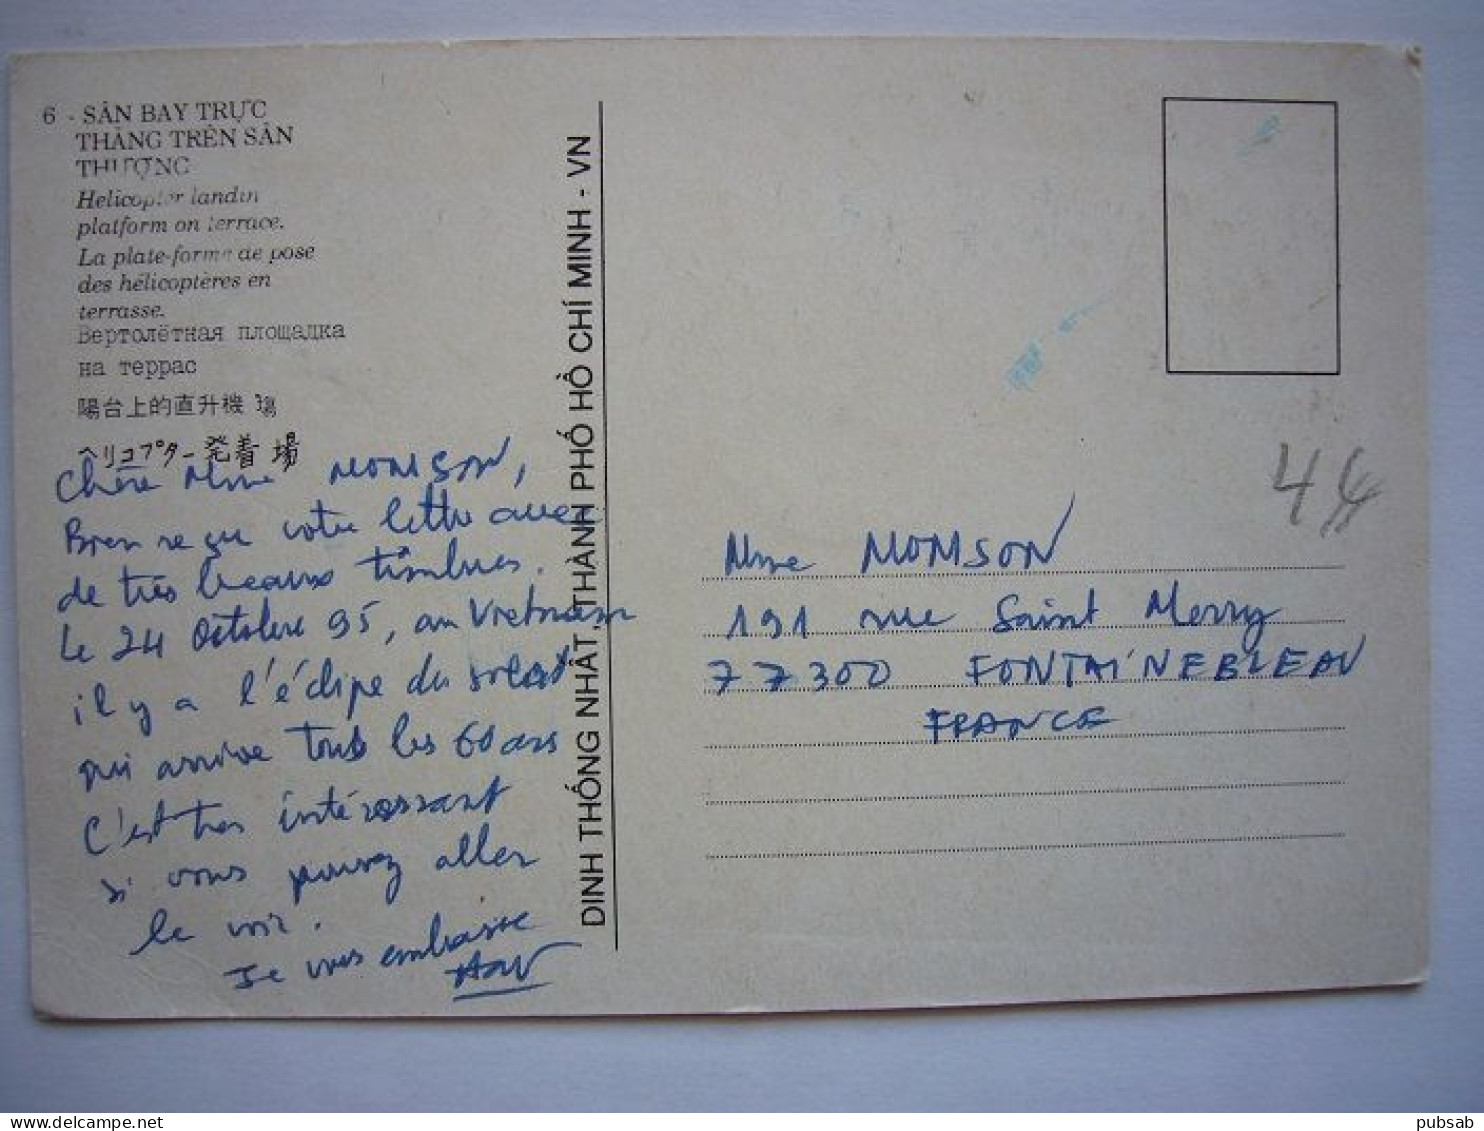 6 - SÂN BAY TRỰC
THĂNG TRÊN SÂN
THƯỢNG
Helicopter landin
platform on terrace.
La plate-forme de pose
des hélicoptères en
terrasse.
Вертолётная площадка
на террас
陽台上的直升機場
ヘリコプター発着場
Chère Mme MOMSON,
Bien reçu votre lettre avec
de très beaux timbres.
Le 24 Octobre 95, au Vietnam
il y a l'éclipe du soleil
qui arrive tous les 60 ans
C'est très intéressant
si vous pouvez aller
le voir.
Je vous embrasse
DINH THỐNG NHẤT THÀNH PHỐ HỒ CHÍ MINH - VN
Mme MOMSON
191 rue Saint Merry
77300 FONTAINEBLEAU
FRANCE
delcampe.net
pubsab